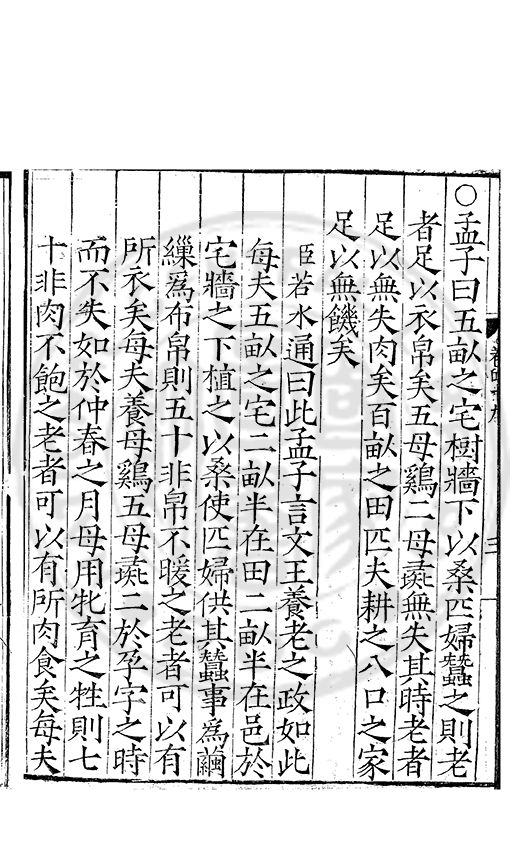 ○孟子曰五畝之宅樹牆下以桑匹婦蠶之則老
者足以衣帛矣五母鷄二母彘無失其時老者
足以無失肉矣百畝之田匹夫耕之八口之家
足以無饑矣
臣若水通曰此孟子言文王養老之政如此
每夫五畝之宅二畝半在田二畝半在邑於
宅牆之下植之以桑使匹婦供其蠶事爲繭
繅爲布帛則五十非帛不暖之老者可以有
所衣矣每夫養母鷄五母彘二於孕字之時
而不失如於仲春之月母用牝育之牲則七
十非肉不飽之老者可以有所肉食矣每夫